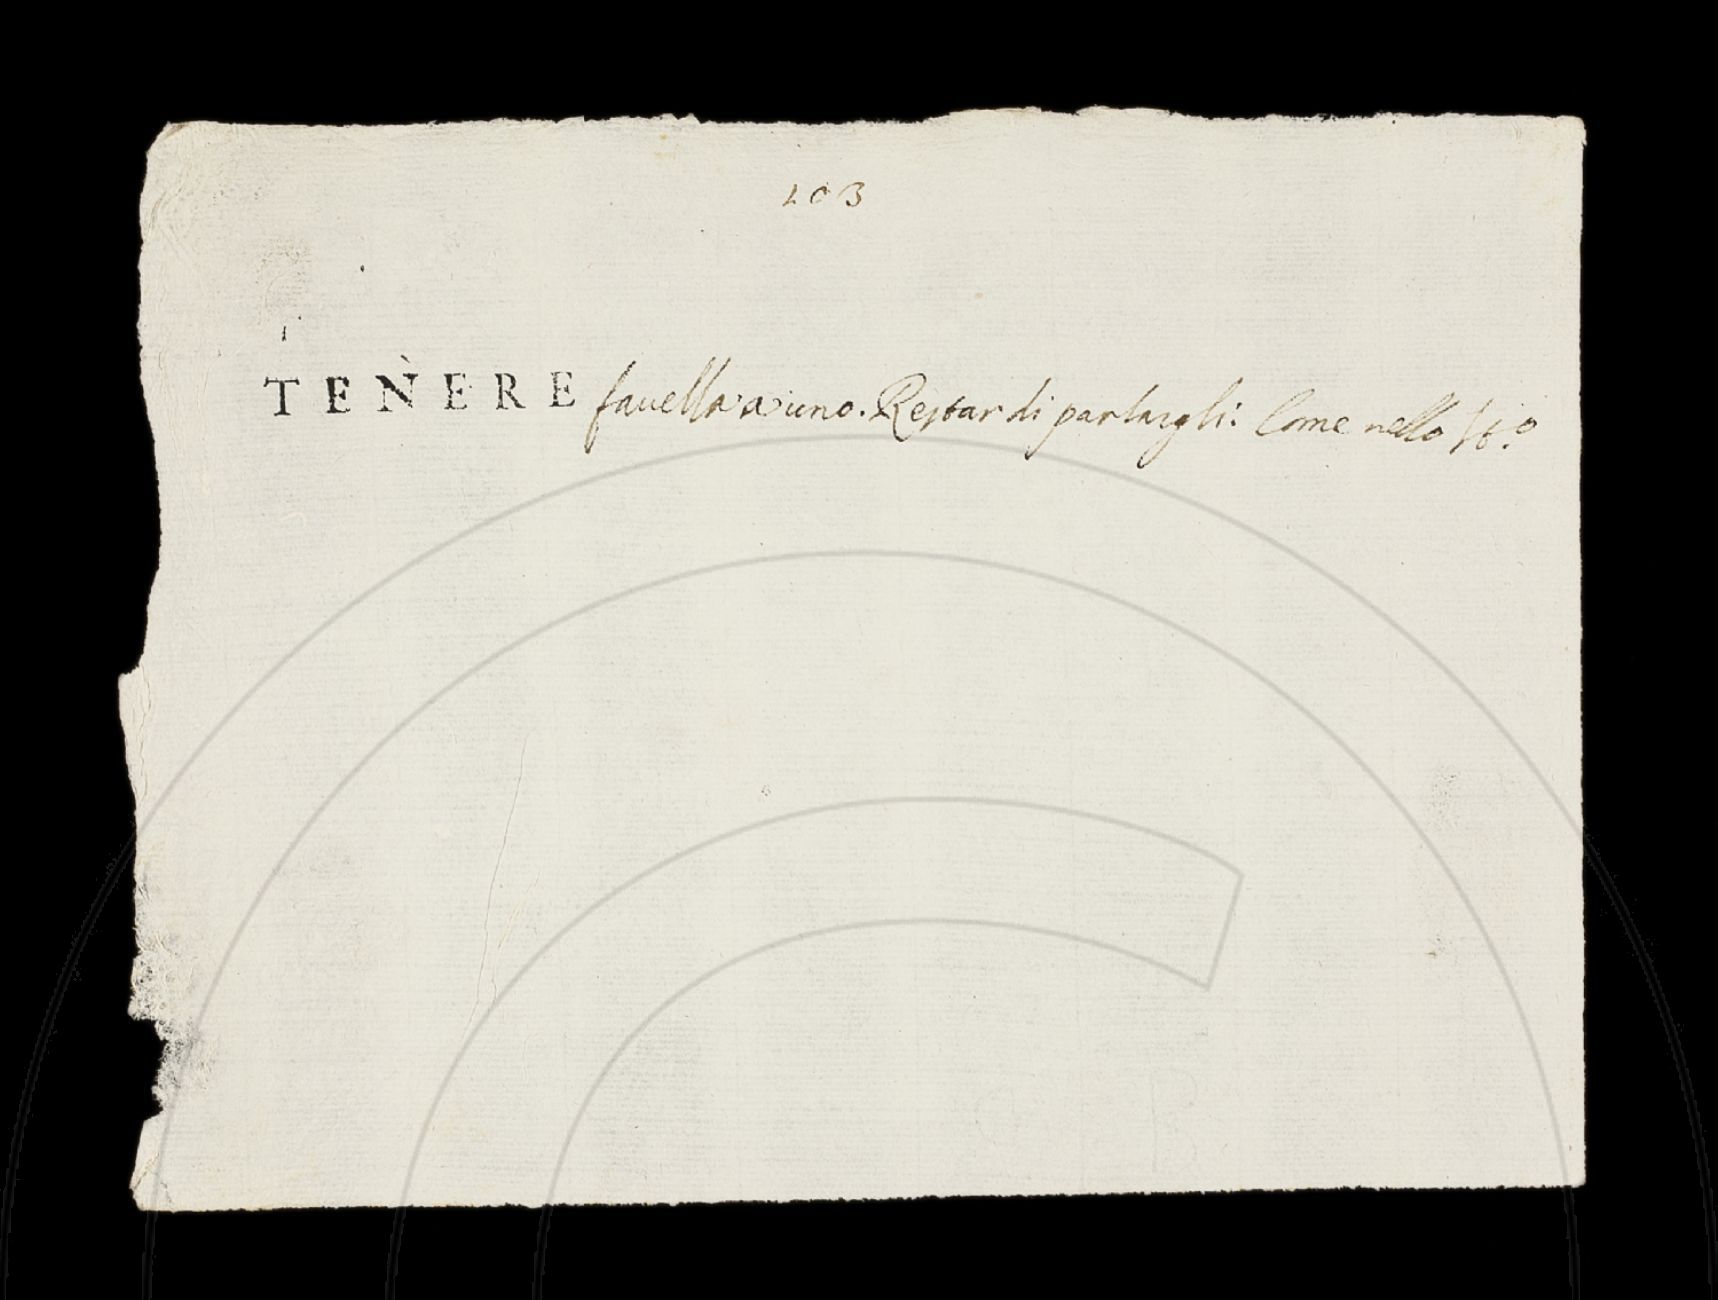 203
TENERE favella a uno. Restar di parlargli: Come nello St.º